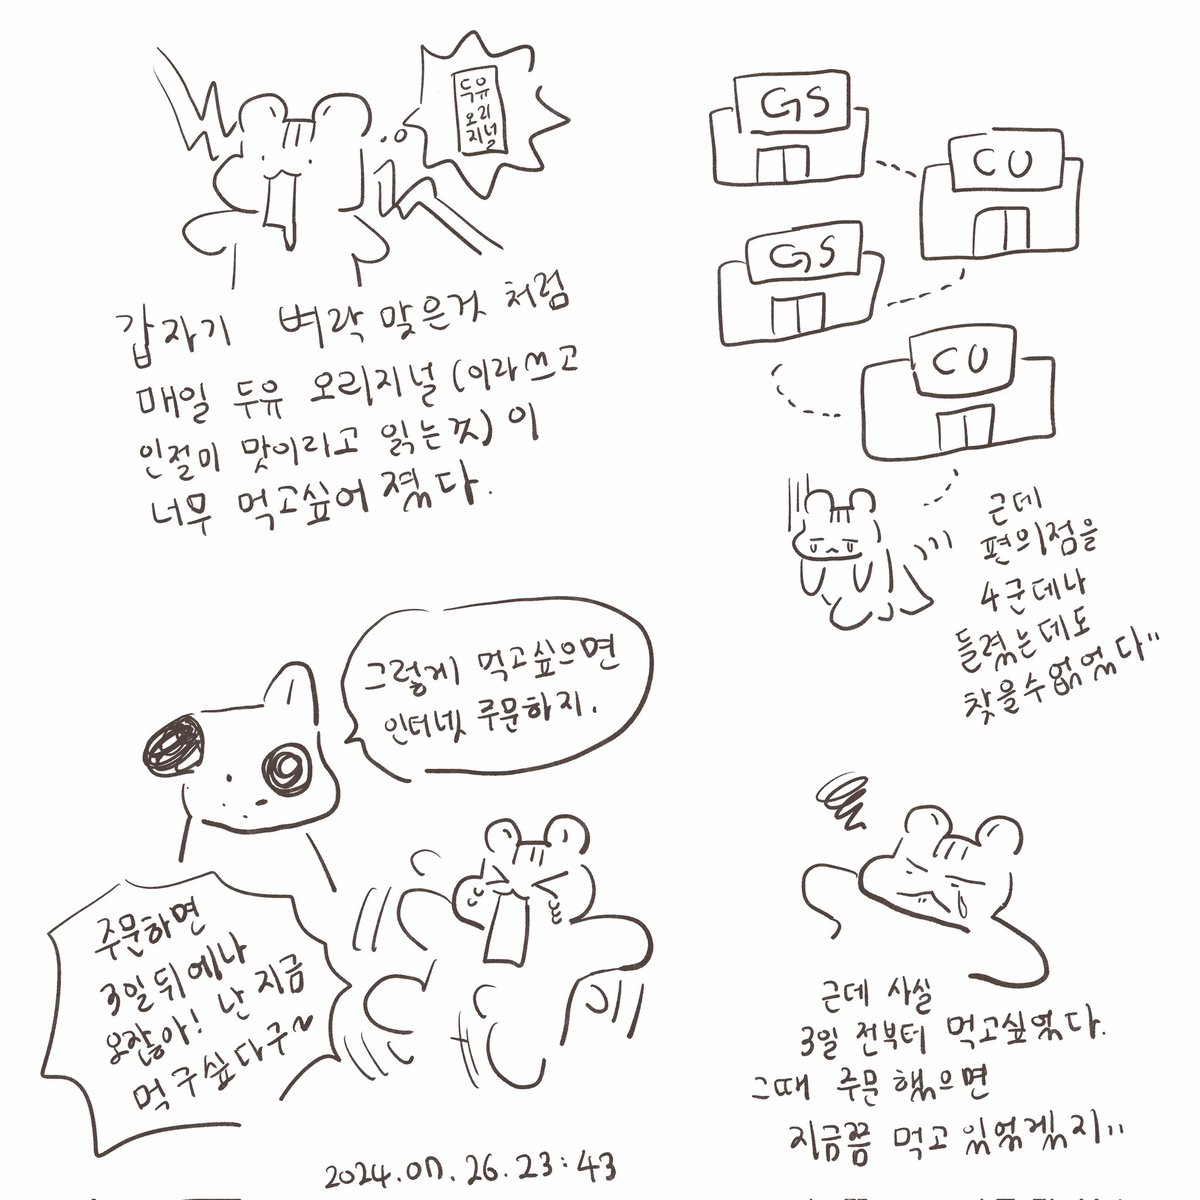 두유
오리
지널
갑자기 벼락 맞은것 처럼
매일 두유 오리지널 (이라쓰고
인절미 맛이라고 읽는것) 이
너무 먹고싶어 졌다.
GS
CU
GS
CU
근데
편의점을
4군데나
들렸는데도
찾을수없었다"
그렇게 먹고싶으면
인터넷 주문하지.
주문하면
3일뒤에나
오잖아! 난 지금
먹구싶다구~
근데 사실
3일 전부터 먹고싶었다.
그때 주문했으면
지금쯤 먹고 있었겠지"
2024.07.26.23:43